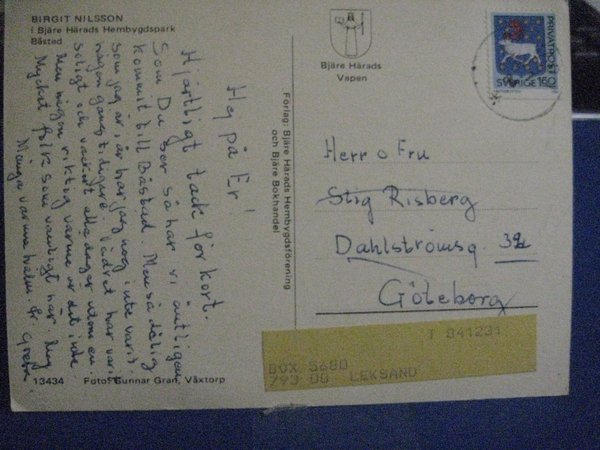 BIRGIT NILSSON
i Bjäre Härads Hembygdspark
Båstad
Hej på Er!
Hjärtligt tack för kort.
Som Du ser så har vi äntligen
kommit till Båstad. Men så dålig
som jag är i år har jag nog inte varit
någon gång tidigare. Vädret har varit
soligt och vackert alla dagar utom en.
Men någon riktig värme är det inte
Mycket folk som vanligt här.
Många varma hälsn. fr. Greta
13434 Foto: Gunnar Gran, Växtorp
Förlag: Bjäre Härads Hembygdsförening
och Bjäre Bokhandel
Bjäre Härads
Vapen
PRIVATPOST
SVERIGE 150
Herr o Fru
Stig Risberg
Dahlströmsg. 32
Göteborg
T 041231
BOX 5680
793 00 LEKSAND